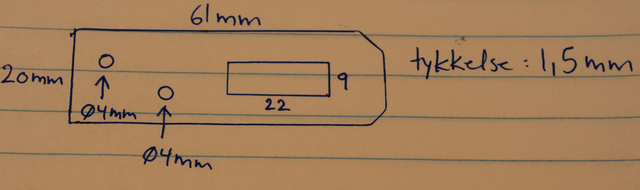 61mm
tykkelse: 1,5mm
20mm
9
22
Ø4mm
Ø4mm